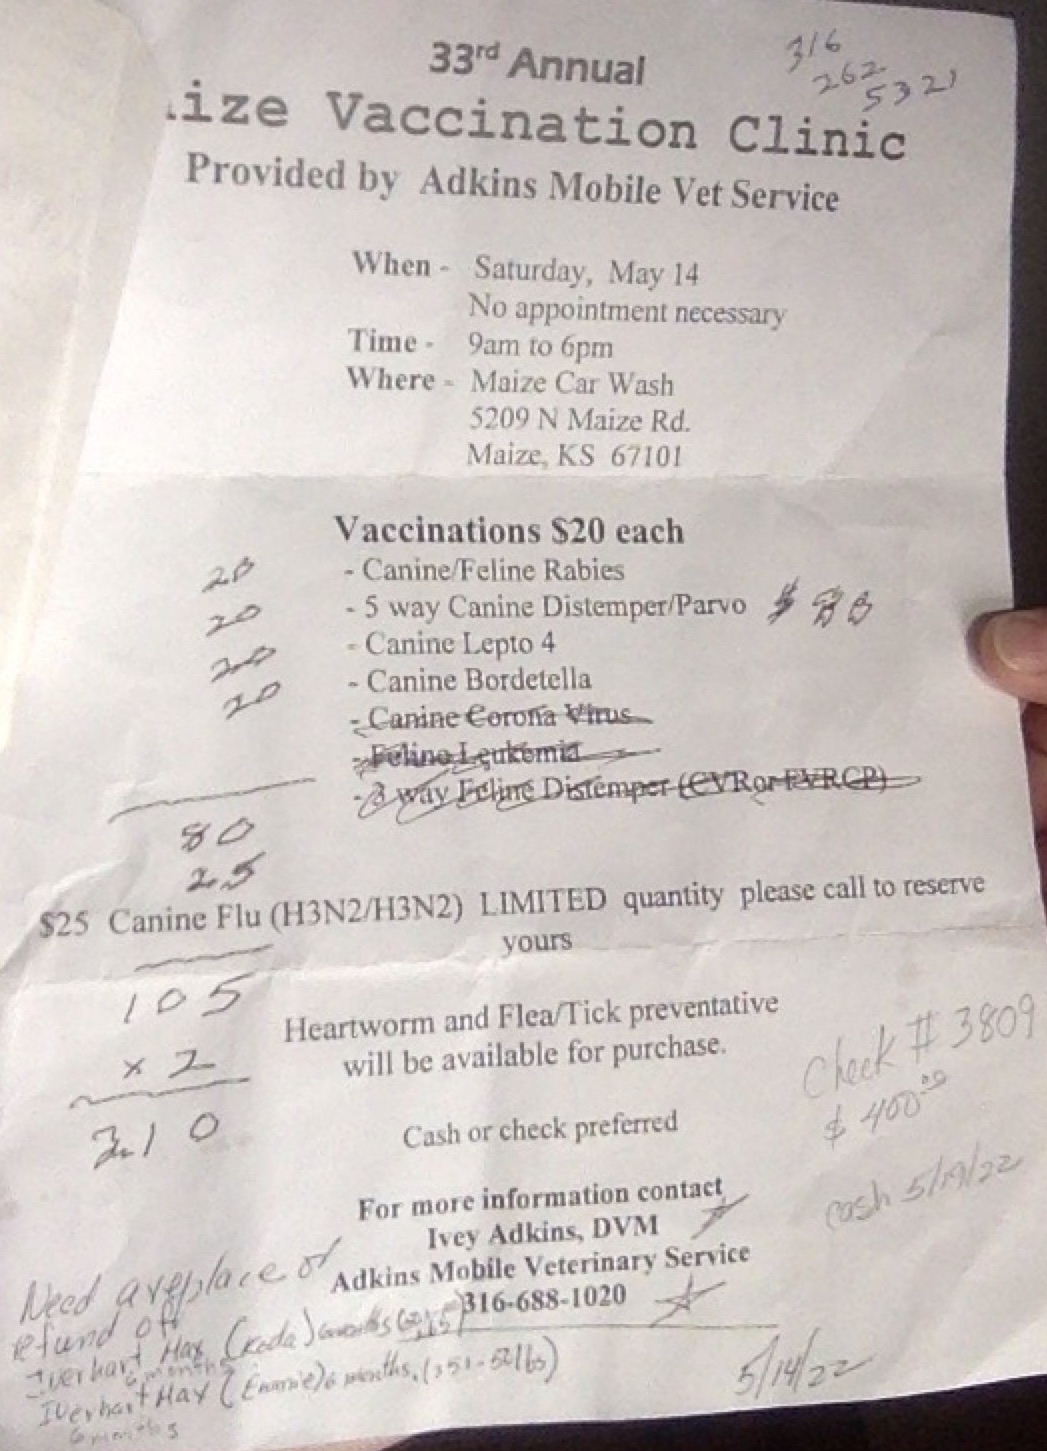 33rd Annual
316
262
5321
ize Vaccination Clinic
Provided by Adkins Mobile Vet Service
When - Saturday, May 14
No appointment necessary
Time - 9am to 6pm
Where - Maize Car Wash
5209 N Maize Rd.
Maize, KS 67101
Vaccinations $20 each
20 - Canine/Feline Rabies
20 - 5 way Canine Distemper/Parvo $
20 - Canine Lepto 4
20 - Canine Bordetella
- Canine Corona Virus
- Feline Leukemia
- 3 way Feline Distemper (CVR or FVRCP)
80
25
$25 Canine Flu (H3N2/H3N2) LIMITED quantity please call to reserve
yours
105
x 2
210
Heartworm and Flea/Tick preventative
will be available for purchase.
Check # 3809
$ 400.00
Cash or check preferred
cash 5/19/22
For more information contact
Ivey Adkins, DVM
Adkins Mobile Veterinary Service
316-688-1020
Need a replace or
refund off
Iverhart Max (Koda) 6 months
6 months
Iverhart Max (Emmie) 6 months, (51-52 lbs)
6 months
5/14/22